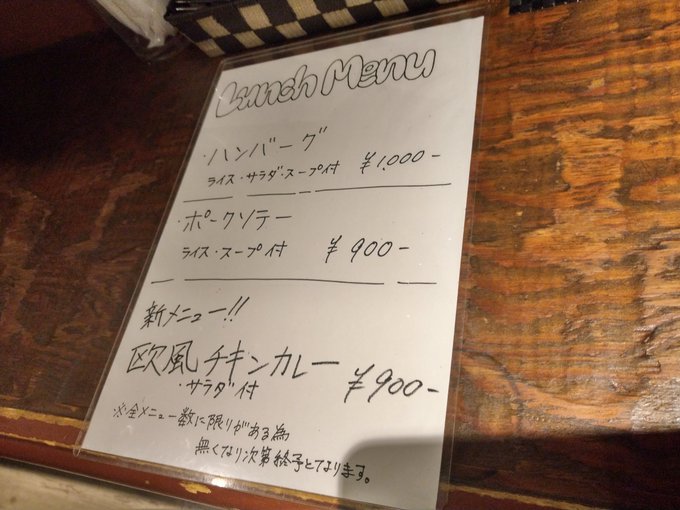 Lunch Menu
・ハンバーグ
ライス・サラダ・スープ付 ¥1,000-
・ポークソテー
ライス・スープ付 ¥900-
新メニュー!!
欧風チキンカレー
・サラダ付 ¥900-
※全メニュー数に限りがある為
無くなり次第終了となります。